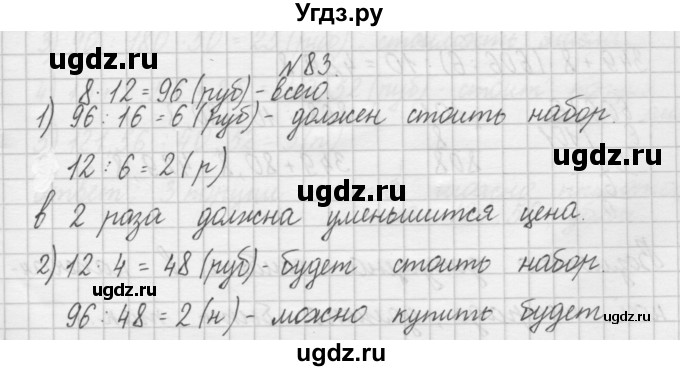 Угдз.ру
№83.
8·12=96(руб)-всего.
1) 96:16=6(руб)-должен стоить набор
12:6=2(р)
в 2 раза должна уменьшится цена.
2) 12:4=48(руб)-будет стоить набор.
96:48=2(н)-можно купить будет
ugdz.ru
ugdz.ru
ugdz.ru
ugdz.ru
ugdz.ru
ugdz.ru
ugdz.ru
ugdz.ru
ugdz.ru